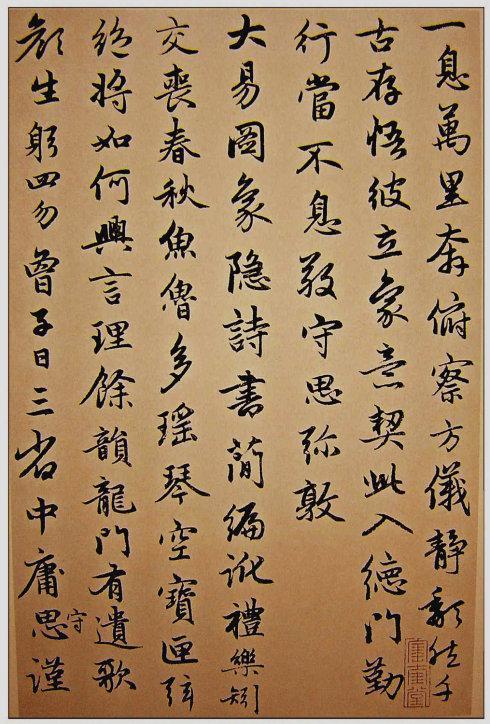 一息萬里奔俯察方儀靜頹然千
古存悟彼立象意契此入德門勤
行當不息敬守思弥敦
大易圖象隱詩書簡編訛禮樂矧
交喪春秋魚魯多瑤琴空寶匣弦
絕將如何興言理餘韻龍門有遺歌
顏生躬四勿曾子日三省中庸思謹
守